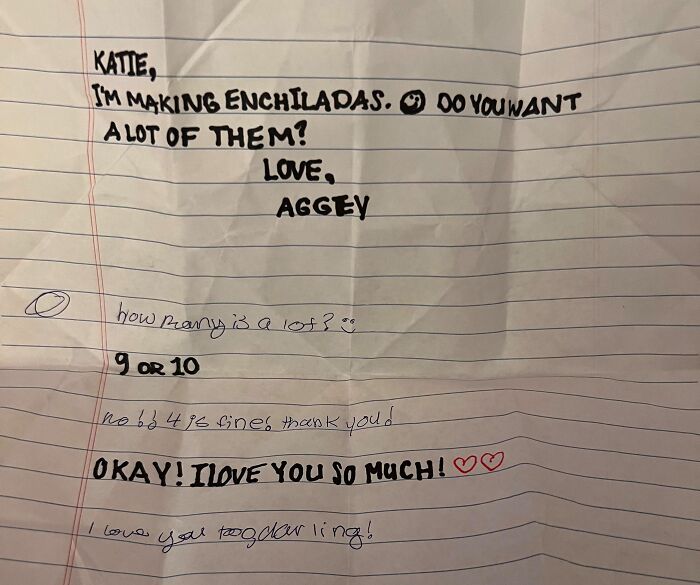 KATIE,
I'M MAKING ENCHILADAS. ☺ DO YOU WANT
A LOT OF THEM?
LOVE,
AGGEY
how many is a lot? ☺
9 OR 10
no!! 4 is fine! thank you!
OKAY! I LOVE YOU SO MUCH! ♡♡
I love you too darling!